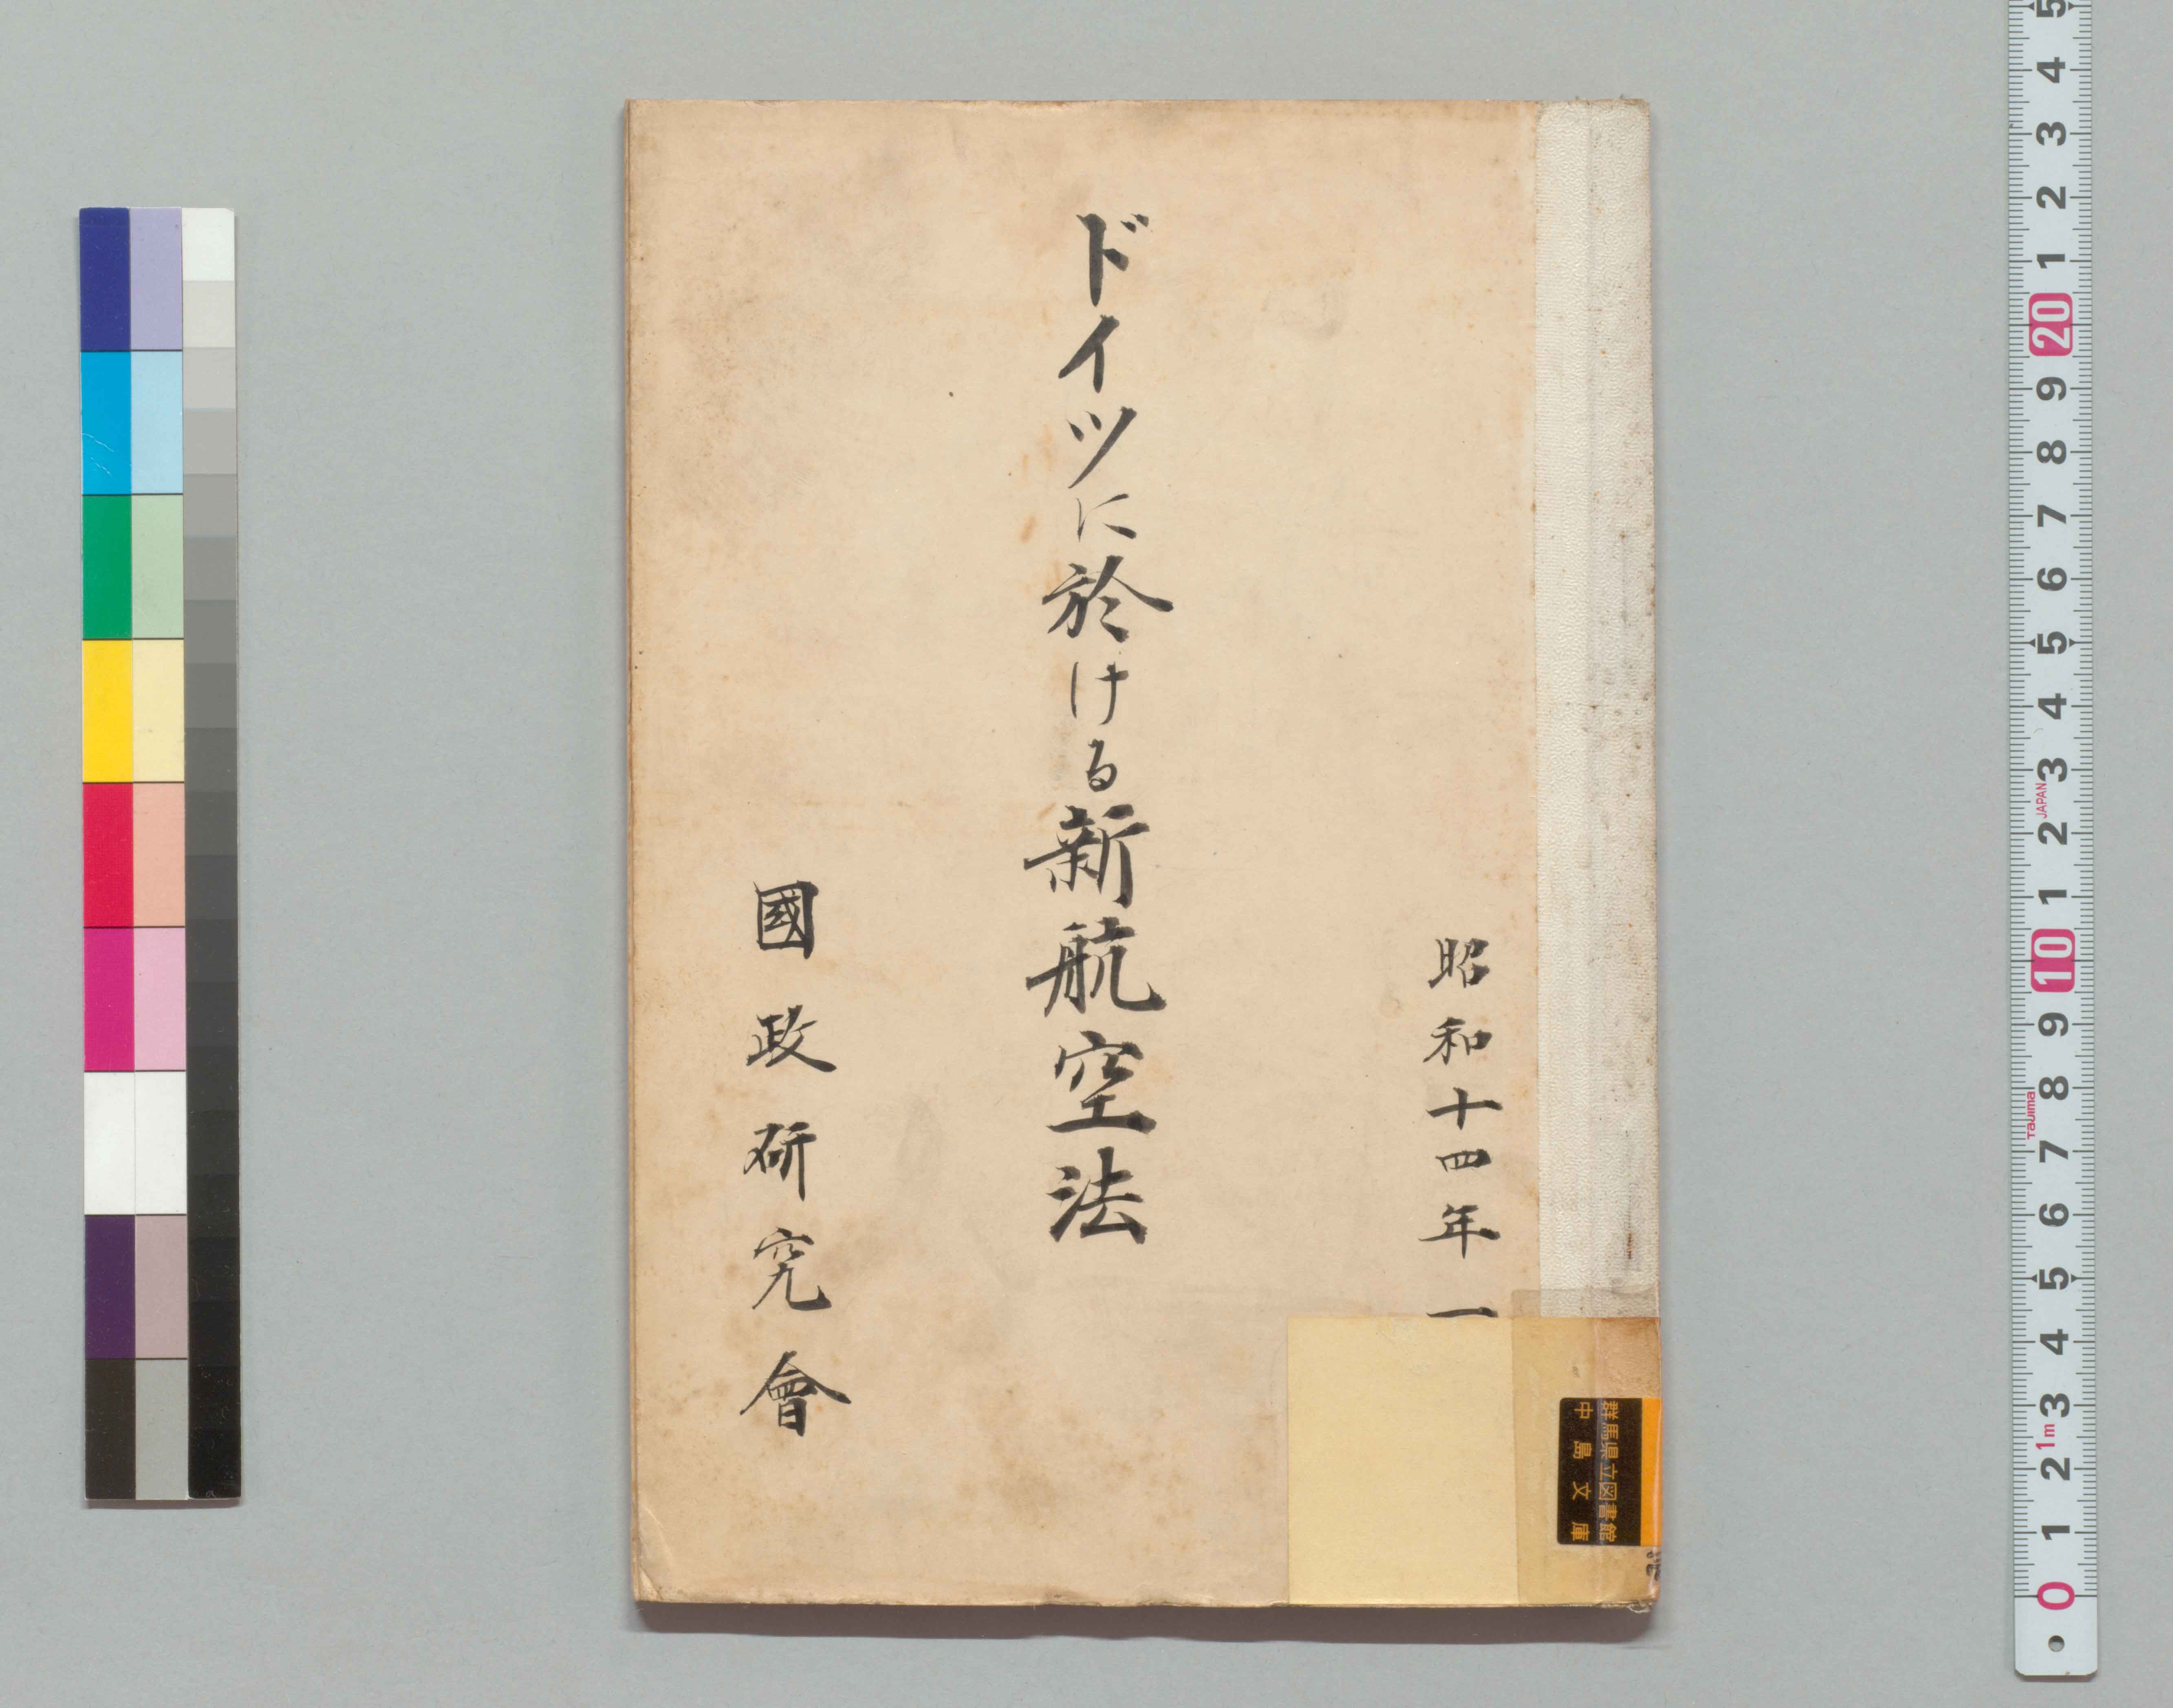 昭和十四年一
ドイツに於ける新航空法
國政研究會
群馬県立図書館
中島文庫
5
4
3
2
1
20
9
8
7
6
5
4
3
JAPAN
2
1
10
9
8
Tajima
7
6
5
4
3
1m
2
1
0